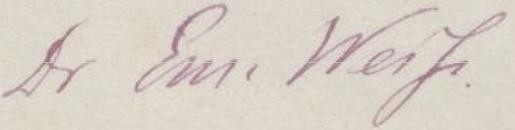 Dr Em. Weiß.